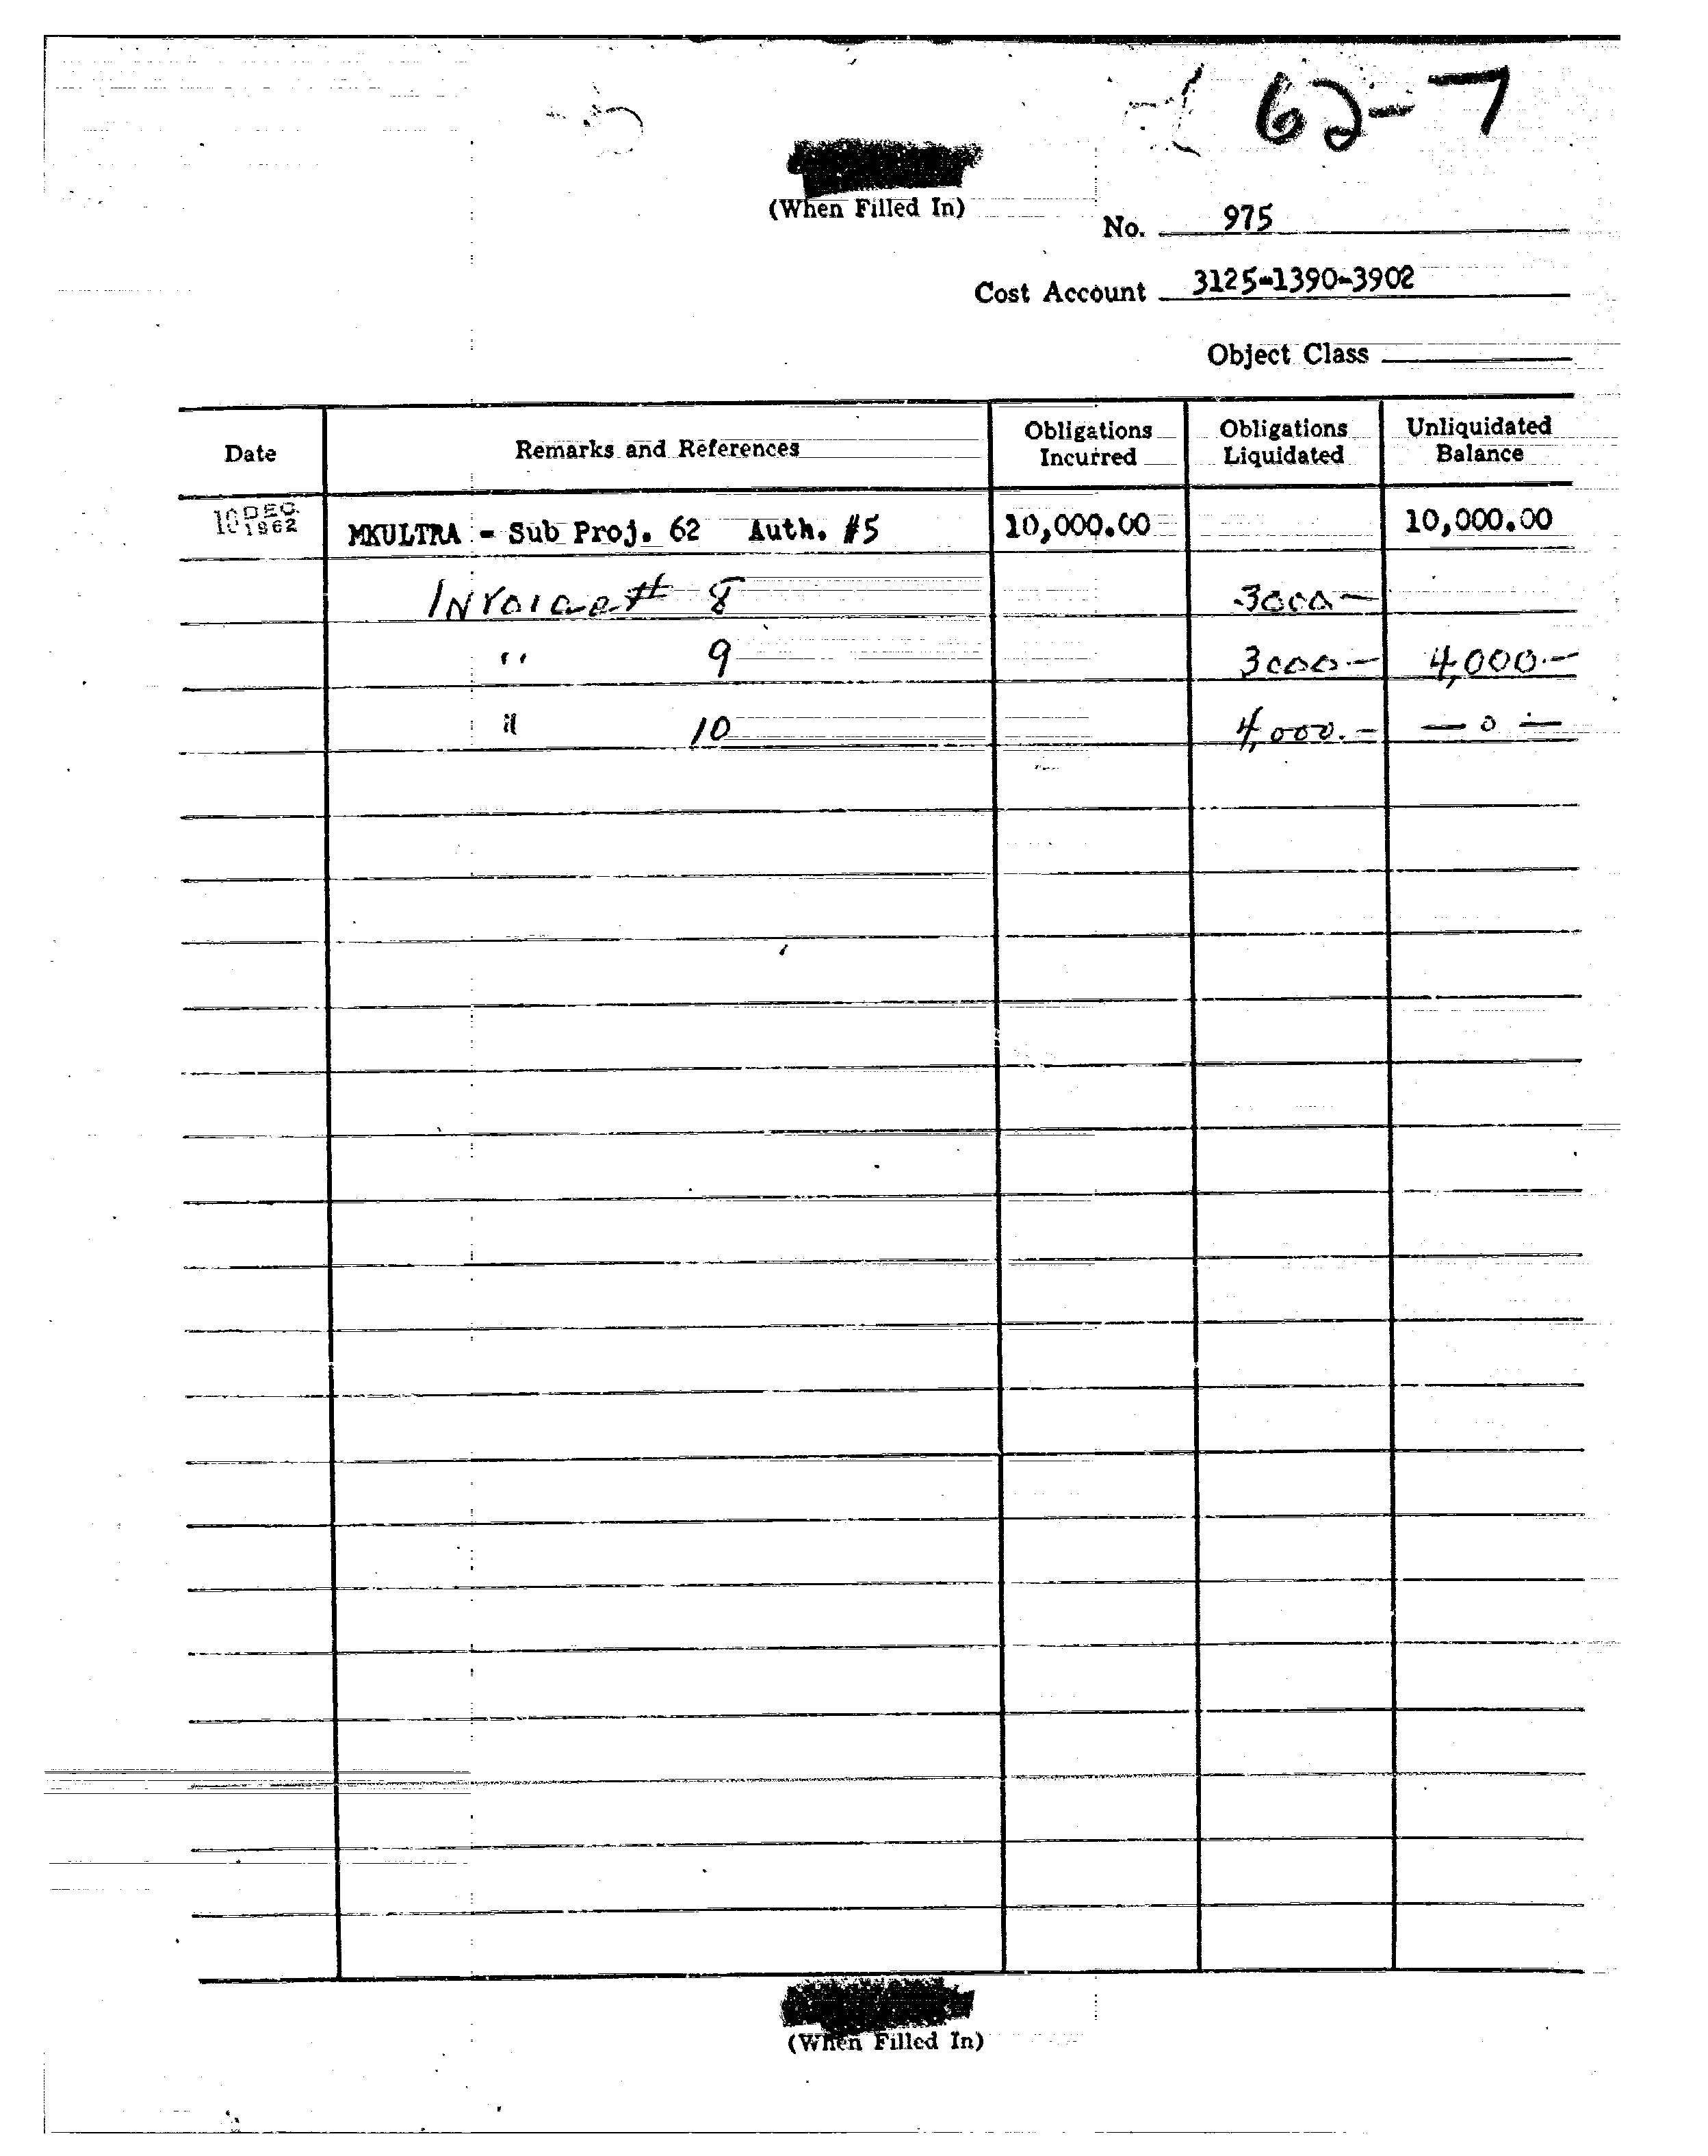 62-7
(When Filled In)
No. 975
Cost Account 3125-1390-3902
Object Class
Date Remarks and References Obligations Incurred Obligations Liquidated Unliquidated Balance
10 DEC. 1962 MKULTRA - Sub Proj. 62 Auth. #5 10,000.00 10,000.00
Invoice # 8 3000 —
" 9 3000.— 4,000.—
" 10 4,000.— — 0 —
(When Filled In)